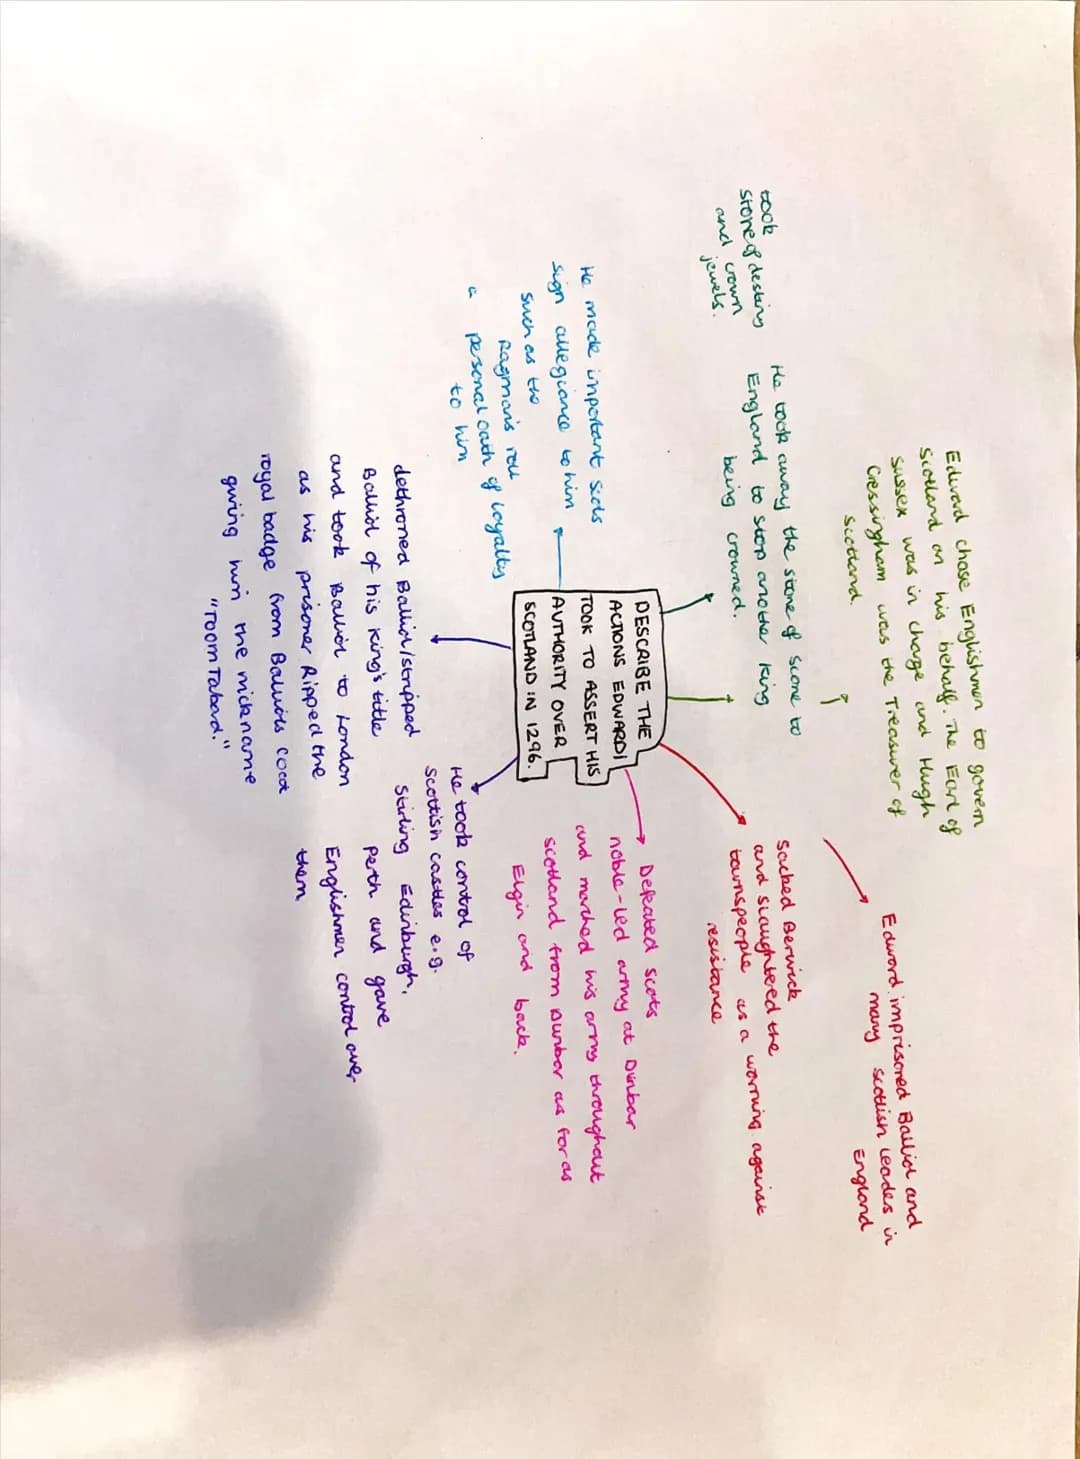 DESCRIBE THE
ACTIONS EDWARD I
TOOK TO ASSERT HIS
AUTHORITY OVER
SCOTLAND IN 1296.
Edward chose Englishmen to govern
Scotland on his behalf. The Earl of
Sussex was in charge and Hugh
Cressingham was the Treasurer of
Scotland.
Edward imprisoned Balliol and
many Scottish leades in
England
took
stone of destiny
and crown
jewels.
He took away the stone of Scone to
England to stop another king
being crowned.
Sacked Berwick
and slaughtered the
townspeople as a warning against
resistance
Defeated Scots
noble-led army at Dunbar
and marched his army throughout
Scotland from Dunbar as far as
Elgin and back.
He made important Scots
sign allegiance to him
such as the
Ragman's roll
a personal oath of loyalty
to him
He took control of
Scottish castles e.g.
Stirling Edinburgh,
Perth and gave
Englishmen control over
them
dethroned Balliol/stripped
Balliol of his king's title
and took Balliol to London
as his prisoner Ripped the
royal badge from Balliols coat
giving him the nickname
"Toom Tabard."